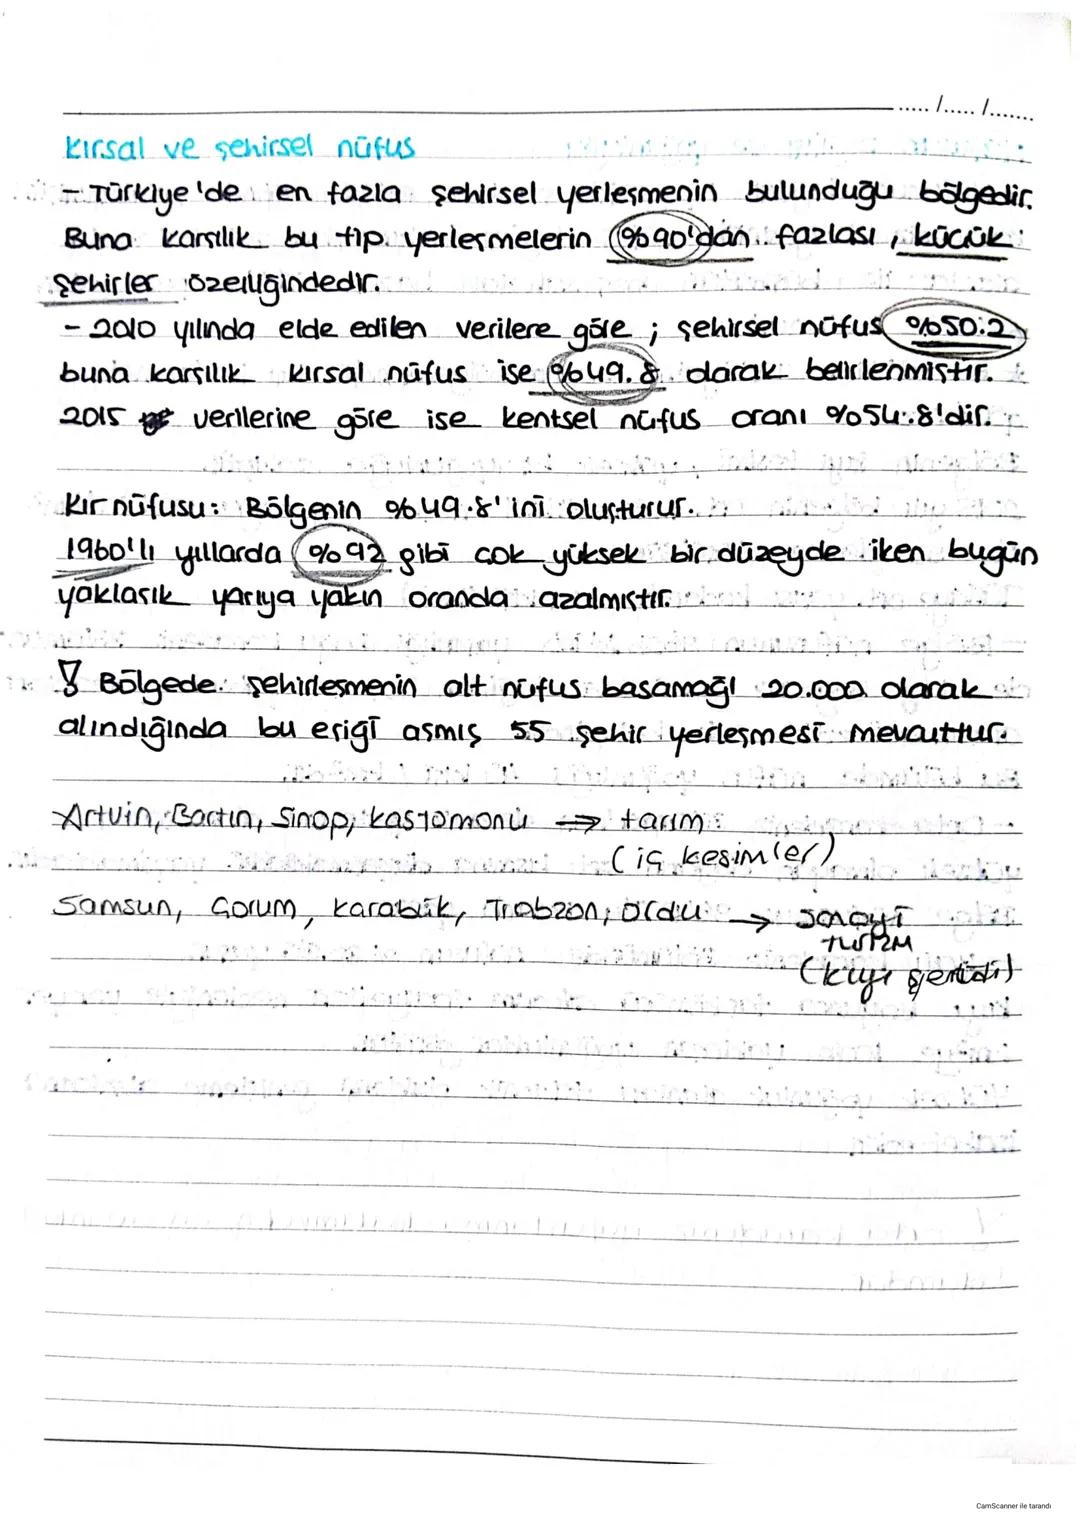 ...../...../.......
Kırsal ve şehirsel nüfus
- Türkiye'de en fazla şehirsel yerleşmenin bulunduğu bölgedir.
Buna karşılık bu tip yerleşmelerin %90'dan fazlası, küçük
şehirler özelliğindedir.
- 2010 yılında elde edilen verilere göre; şehirsel nüfus %50.2
buna karşılık kırsal nüfus ise %49.8 olarak belirlenmiştir.
2015 verilerine göre ise kentsel nüfus oranı %54.8'dir.
Kır nüfusu: Bölgenin %49.8'ini oluşturur.
1960'lı yıllarda %92 gibi çok yüksek bir düzeyde iken bugün
yaklaşık yarıya yakın oranda azalmıştır.
! Bölgede şehirleşmenin alt nüfus basamağı 20.000 olarak
alındığında bu eşiği aşmış 55 şehir yerleşmesi mevcuttur.
Artvin, Bartın, Sinop, Kastomonu → tarım
(iç kesimler)
Samsun, Çorum, Karabük, Trabzon, Ordu → sanayi
turizm
(kıyı şeridi)
CamScanner ile tarandı